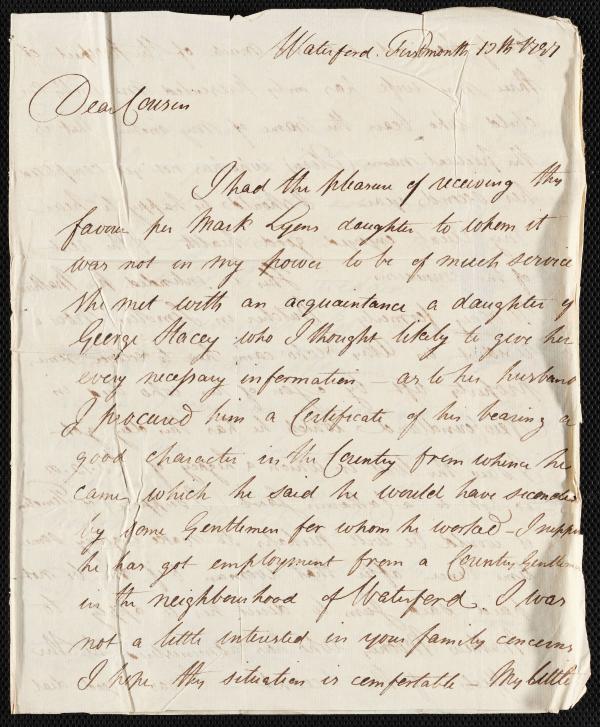 Waterford. Firstmonth 17th
Dear Cousin
I had the pleasure of receiving thy
favour per Mark Lyons daughter to whom it
was not in my power to be of much service
She met with an acquaintance a daughter of
George Stacey who I thought likely to give her
every necessary information – as to his husband
I procured him a Certificate of his bearing a
good character in the Country from whence he
came which he said he would have seconded
by some Gentlemen for whom he worked – I suppose
he has got employment from a Country Gentleman
in the neighbourhood of Waterford I was
not a little interested in your family concerns
I hope thy situation is comfortable – My little